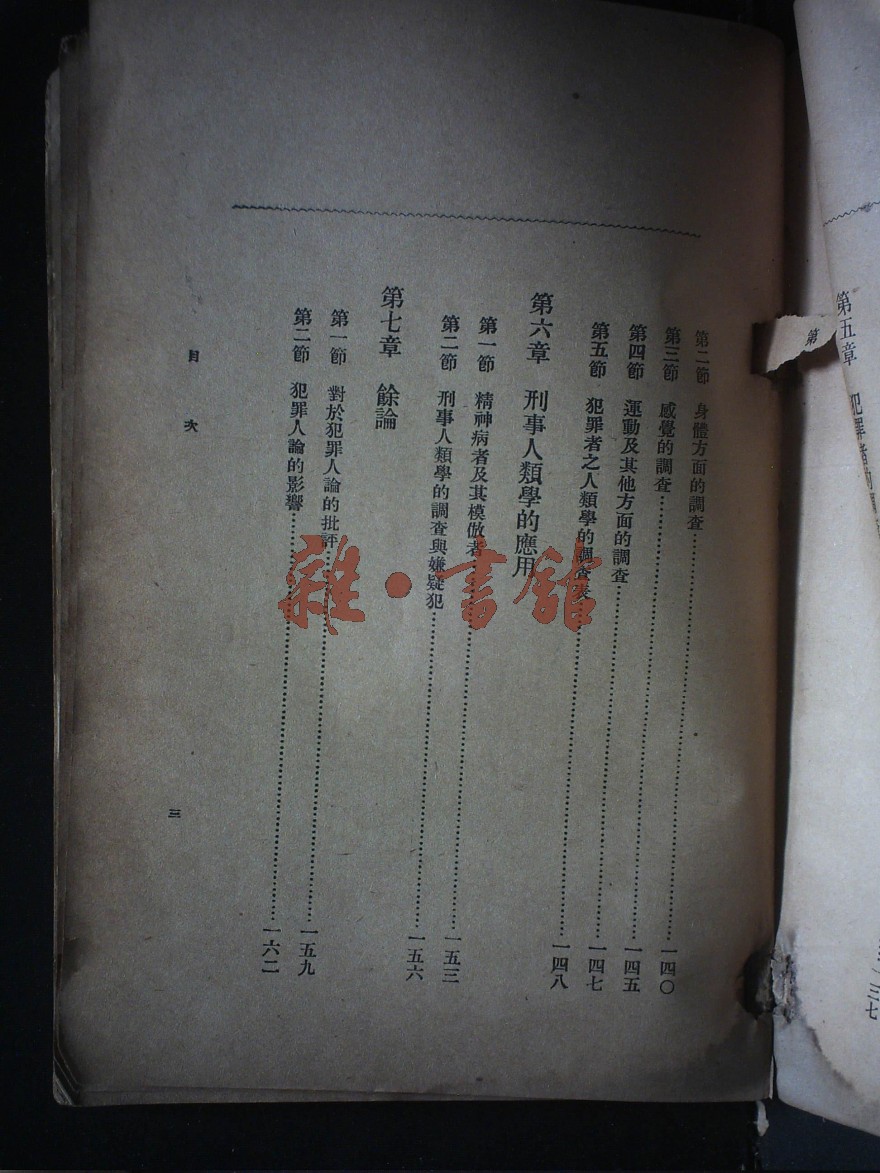 第五章 犯罪者的
第
一三七
第二節 身體方面的調查……一四〇
第三節 感覺的調查……一四五
第四節 運動及其他方面的調查……一四七
第五節 犯罪者之人類學的調查表……一四八
第六章 刑事人類學的應用
第一節 精神病者及其模倣者……一五三
第二節 刑事人類學的調查與嫌疑犯……一五六
第七章 餘論
第一節 對於犯罪人論的批評……一五九
第二節 犯罪人論的影響……一六二
目次
三
雜·書館